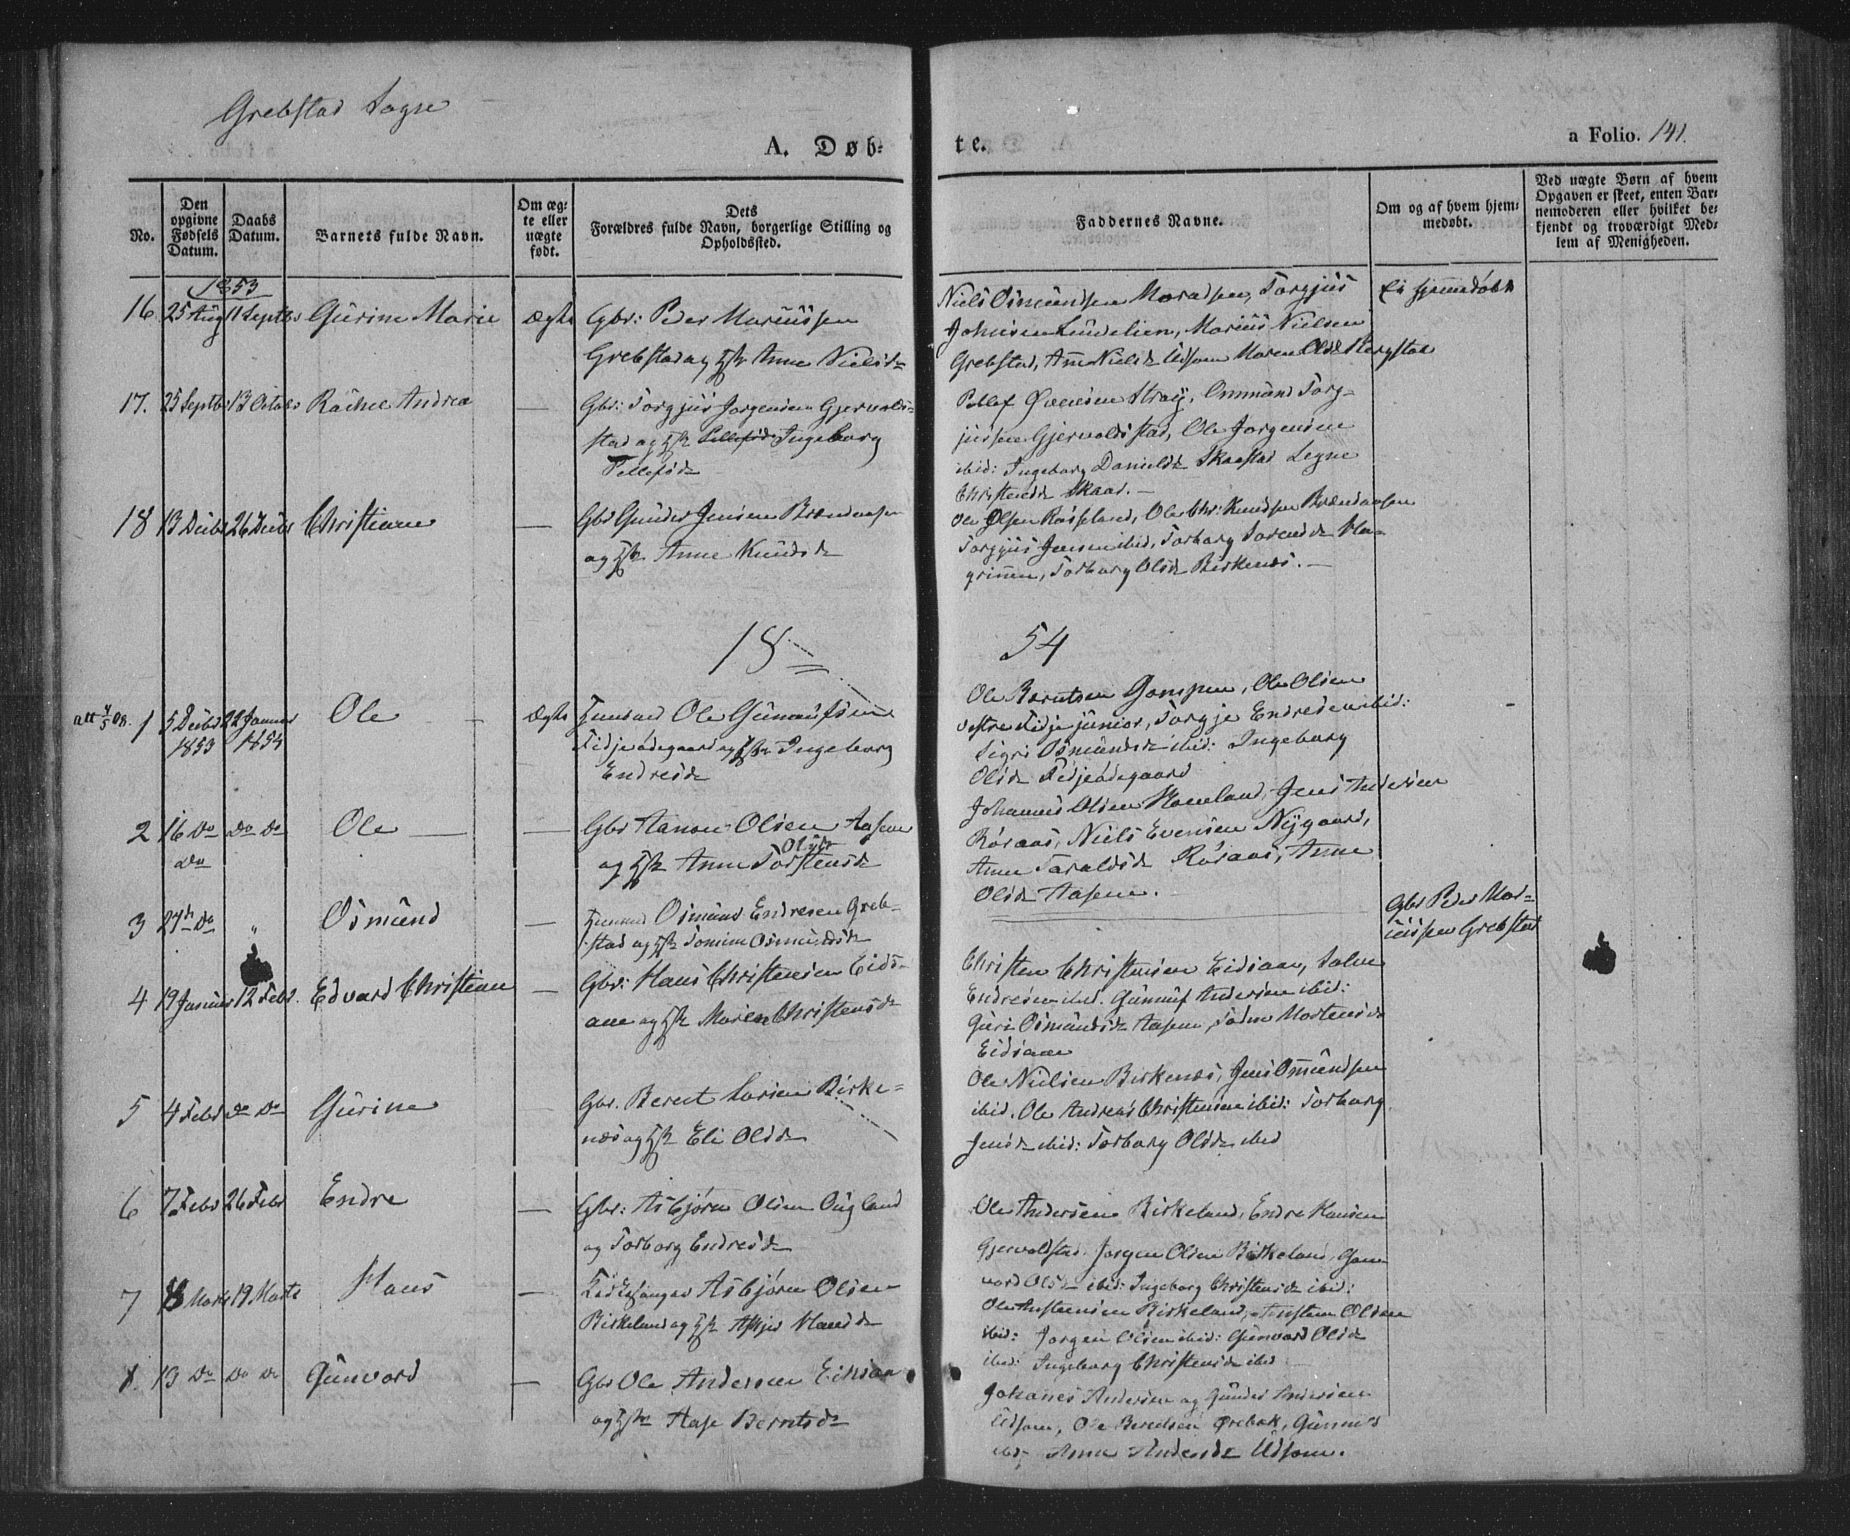 Grebstad Sogn
A. Døb- te.
a Folio. 141.
No.
Den opgivne Fødsels Datum.
Daabs Datum.
Barnets fulde Navn.
Om ægte eller nægte født.
Dets Forældres fulde Navn, borgerlige Stilling og Opholdssted.
Faddernes Navne.
Om og af hvem hjemmedøbt.
Ved nægte Børn af hvem Opgaven er skeet, enten Barnemoderen eller hvilket bekjendt og troværdigt Medlem af Menigheden.
1853
16 25 Aug 11 Septbr Gurine Marie ægte Gbr: Peder Mariussen
Grebstad og Hstr Anne Nielsd
Niels Osmundsen, Torgjus
Johnsen, Marius Nielsen
Grebstad, Ane Nielsd Udsom Maren Olsd
Ei hjemmedøbt
17. 25 Septbr 13 Octobr Rachel Andrea — Gbr: Torgjus Jørgensen Gjervolds-
stad og Hstr Tellefsd Ingeborg
Tellefsd
Tellef Stray, Osmund Torg-
jussen Gjervoldstad, Ole Jørgensen
ibid: Ingeborg Danielsd Legne
Christensd Skaar. —
18 13 Decbr 26 Decbr Christiane — Gbr Gunder Jensen Brændaasen
og Hstr Anne Knudsd
Ole Olsen Røiseland, Ole Chr: Knudsen Brændaasen
Torgjus Jensen ibid, Torborg
Torborg Olsd Birkenes. —
18
54
att 4/5 08. 1 5 Decbr 1853 22 Januar 1854 Ole — ægte Huusmd Ole Gunnufsen
Tidjeødegaard og Hstr Ingeborg
Endresd
Ole Berntsen, Ole Olsen
vestre Tidje junior, Torgje Endresen ibid:
Sigri Osmundsd ibid: Ingeborg
Olsd Tidjeødegaard
2 16 Do Do Do Do Ole — — Gbr Aanon Olsen Aasen
og Hstr Anne Torstensd
Olsdr
Johannes Olsen, Jens Andersen
Røraas, Niels Evensen Nygaard,
Anne Taraldsd Røraas, Anne
Olsd Aasen.
3 27de Do " Osmund — Huusmd Osmund Endresen Greb-
stad og Hstr Tomine Osmundsd
Gbr Peder Mar-
iussen Grebstad
4 19 Januar 12 Febr. Edvard Christian — Gbr: Hans Christensen Eids-
aae og Hstr Maren Christensd
Christen Christensen Eidsaae, Salve
Endresen ibid. Gunnuf Andersen ibid:
Guri Osmundsd Aasen, Mortensd
Eidsaae
5 4 Febr Do Do Gurine Gbr. Berent Larsen Birke-
næs og Hstr Eli Olsd
Ole Nielsen Birkenæs, Jens Osmundsen
ibid. Ole Andreas Christensen ibid: Torborg
Jensd ibid: Torborg Olsd ibid
6 7 Febr 26 Febr Endre — Gbr: Asbjørn Olsen Øugland
og Torborg Endresd
Ole Andersen Birkeland, Endre Hansen
Gjervoldstad. Jørgen Olsen Birkeland, Gun-
vord Olsd ibid: Ingeborg Christensd ibid:
7 8 Marts 19 Marts Hans — Kirkesanger Asbjørn Olsen
Birkeland og Hstr Hansd
Ole Birkeland, Olsen
ibid: Jørgen Olsen ibid: Gunvord Olsd
ibid: Ingeborg Christensd ibid
8. 13 Do Do Do Gunvord — Gbr Ole Andersen
og Hstr Aase Berntsd
Johanes Andersen og Gunder Andersen
Udsom, Ole Berentsen
ibid Anne Andersd Udsom.